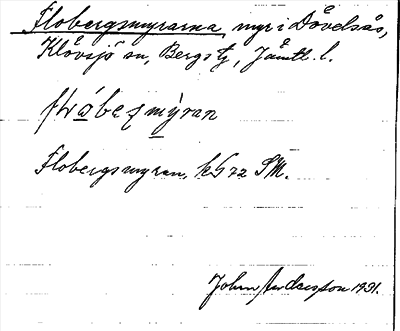 Flobergsmyrarna, myr i Dåvelsås,
Klövsjö sn, Bergs tg, Jämtl. l.
Flobergsmyran,
John Andersson 1931.